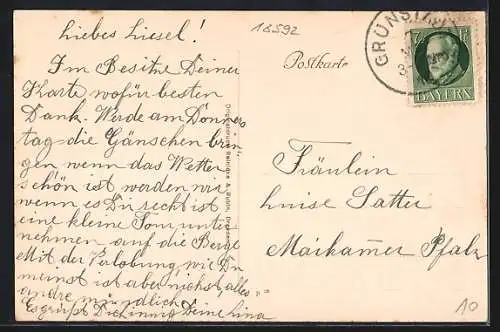 Liebes Liesel!
Im Besitze Deiner
Karte wofür besten
Dank. Werde am Donners
tag die Gänschen brin
gen wenn das Wetter
schön ist werden wir
wenn es Dir recht ist
eine kleine Tour unter
nehmen auf die Berge
Mit der Verlobung, wie Du
meinst ist aber nichst, alles
andre mündlich
Es grüßt Dich innig Deine Lina
18592
Postkarte
GRÜNST
BAYERN
Fräulein
Luise Satter
Maikamer Pfalz
10